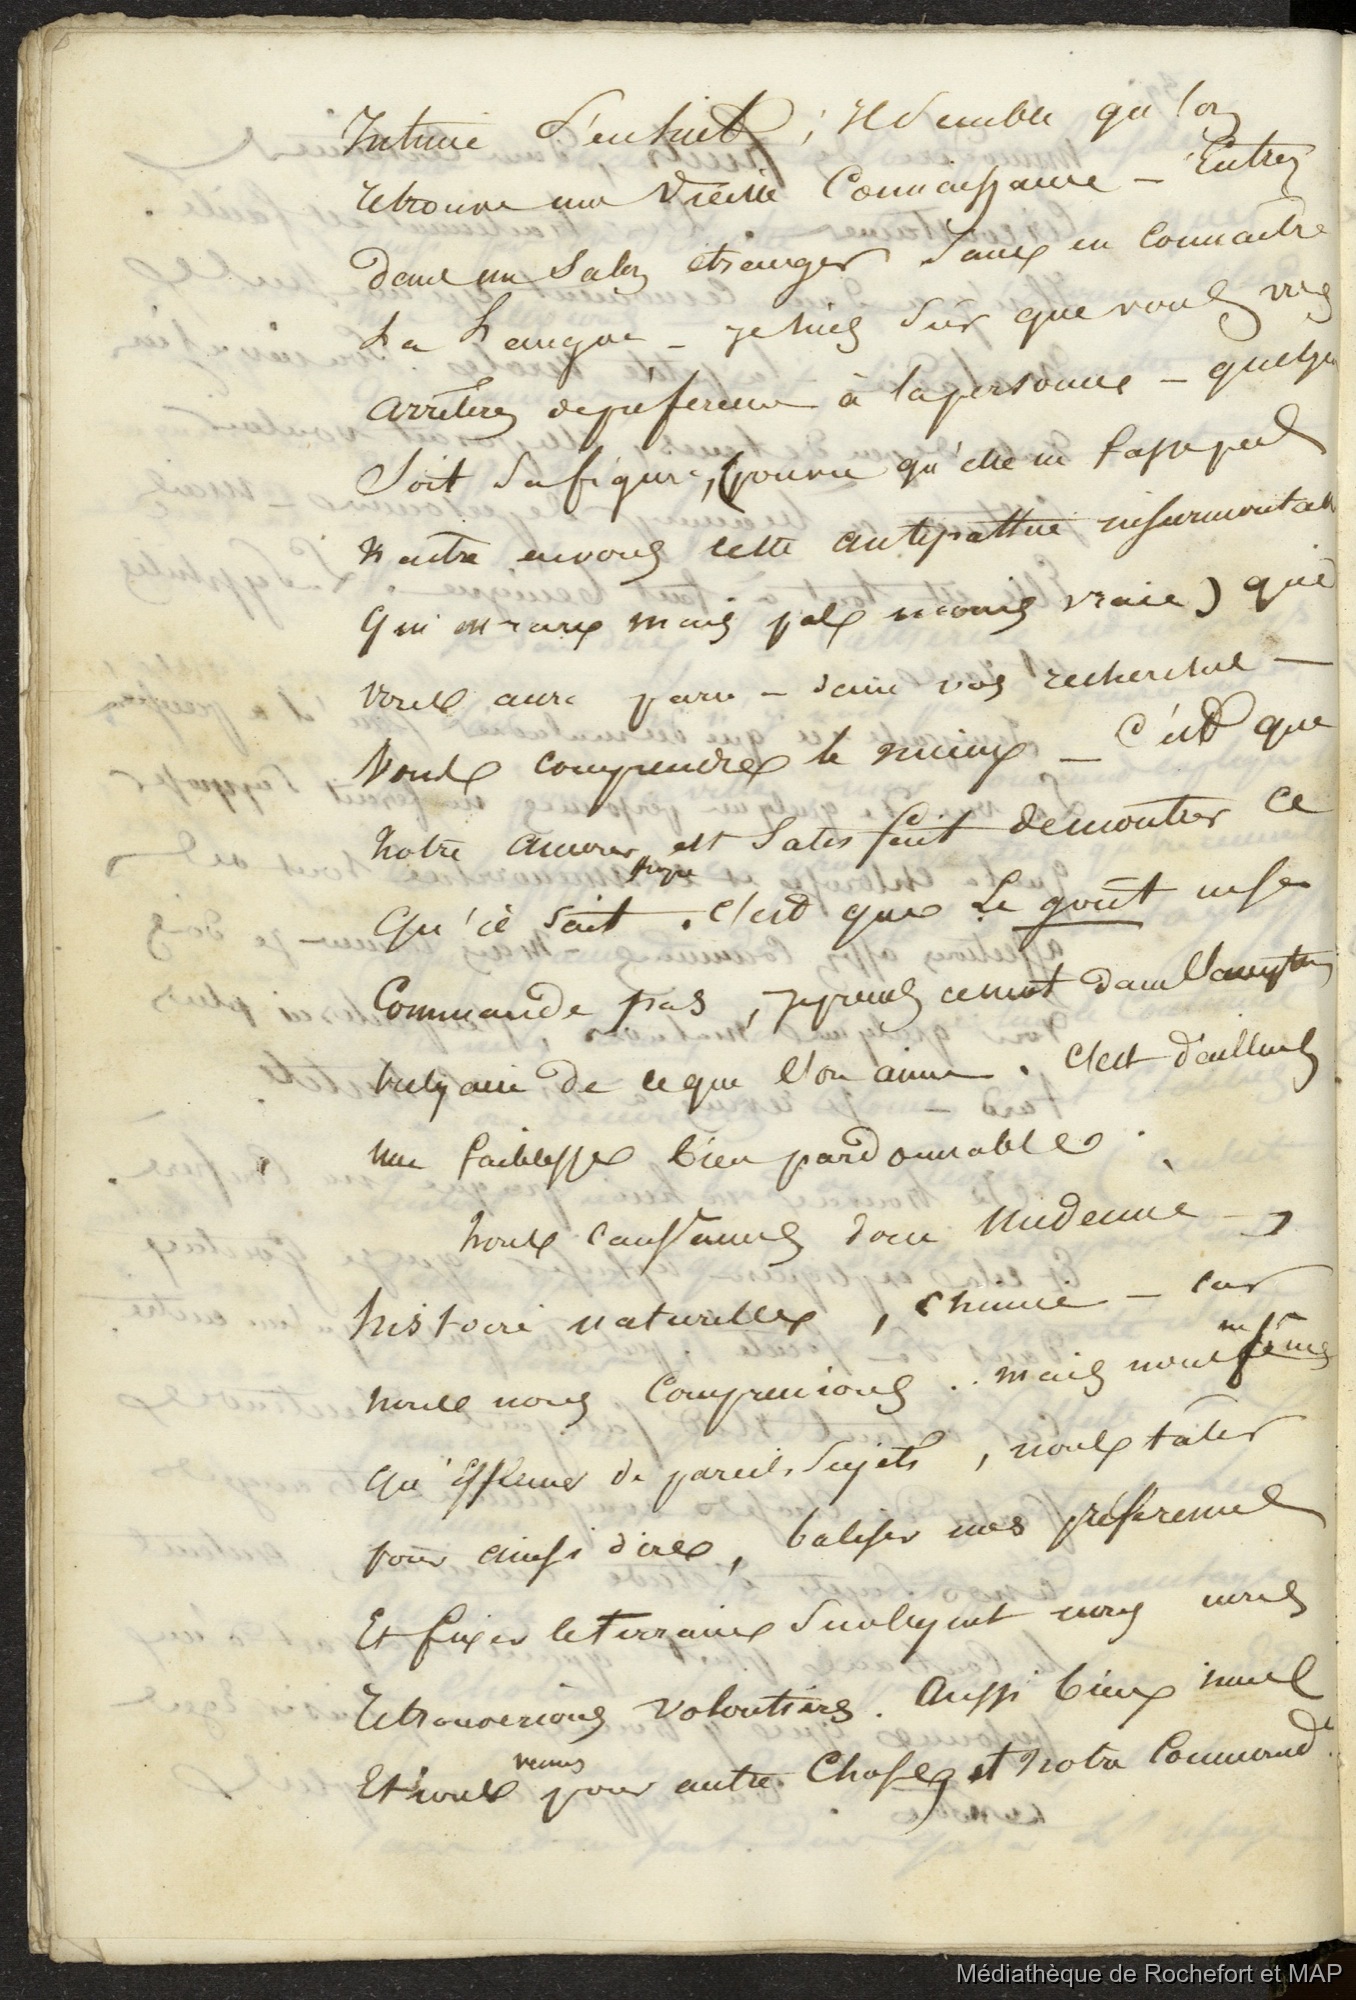 Intime s'ensuit ; il semble qu'on
retrouve une vieille connaissance – Entrez
dans un salon étranger sans en connaitre
la langue – je suis sûr que vous vous
arrêterez de préférence à la personne – quelque
soit sa figure, (pourvu qu'elle ne fasse pas
naitre en vous cette antipathie insurmontable
qui est rare mais pas moins vraie) qui
vous aura paru – dans vos recherches –
vous comprendre le mieux – c'est que
notre amour propre est satisfait de montrer ce
qu'il sait . c'est que le goût ne se
commande pas , je prends ce mot dans l'acception
vulgaire de ce que l'on aime . C'est d'ailleurs
une faiblesse bien pardonnable .
nous causâmes donc médecine –
histoire naturelle , chimie – car
nous nous comprenions . mais nous ne fîmes
qu'effleurer de pareils sujets , nous tâter
pour ainsi dire , baliser nos préférences
Et fixer le terrain sur lequel nous nous
retrouverions volontiers . Aussi bien nous
Etions venus pour autre chose, et notre Command.t
Médiathèque de Rochefort et MAP